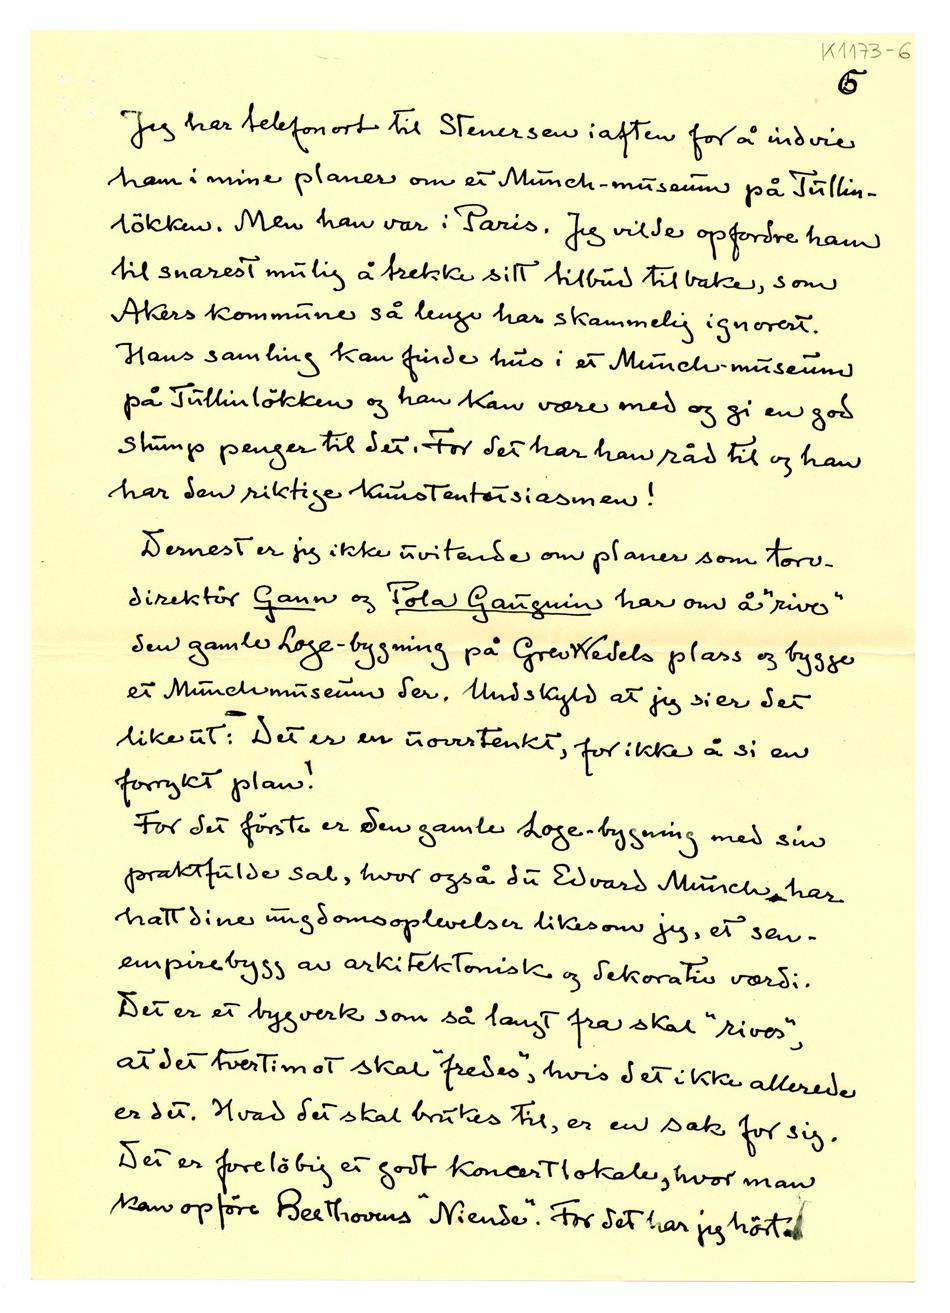 K1173-6
6
Jeg har telefonort til Stenersen iaften for å indvie
ham i mine planer om et Munch-museum på Tullin-
lökken. Men han var i Paris. Jeg vilde opfordre ham
til snarest mulig å trekke sitt tilbud tilbake, som
Akers kommune så lenge har skammelig ignorert.
Hans samling kan finde hus i et Munch-museum
på Tullinlökken og han kan være med og gi en god
stump penger til det. For det har han råd til og han
har den riktige kunstentusiasmen!
Dernest er jeg ikke uvitende om planer som torv-
direktör Gann og Pola Gauguin har om å "rive"
den gamle Loge-bygning på Grev Wedels plass og bygge
et Munchmuseum der. Undskyld at jeg sier det
like ut: Det er en uoverstenkt, for ikke å si en
forrykt plan!
For det förste er den gamle Loge-bygning med sin
praktfulde sal, hvor også du Edvard Munch har
hatt dine ungdomsoplevelser likesom jeg, et sen-
empirebygg av arkitektonisk og dekorativ værdi.
Det er et bygverk som så langt fra skal "rives",
at det tvertimot skal "fredes", hvis det ikke allerede
er det. Hvad det skal brukes til, er en sak for sig.
Det er forelöbig et godt koncertlokale, hvor man
kan opföre Beethovens "Niende". For det har jeg hört.